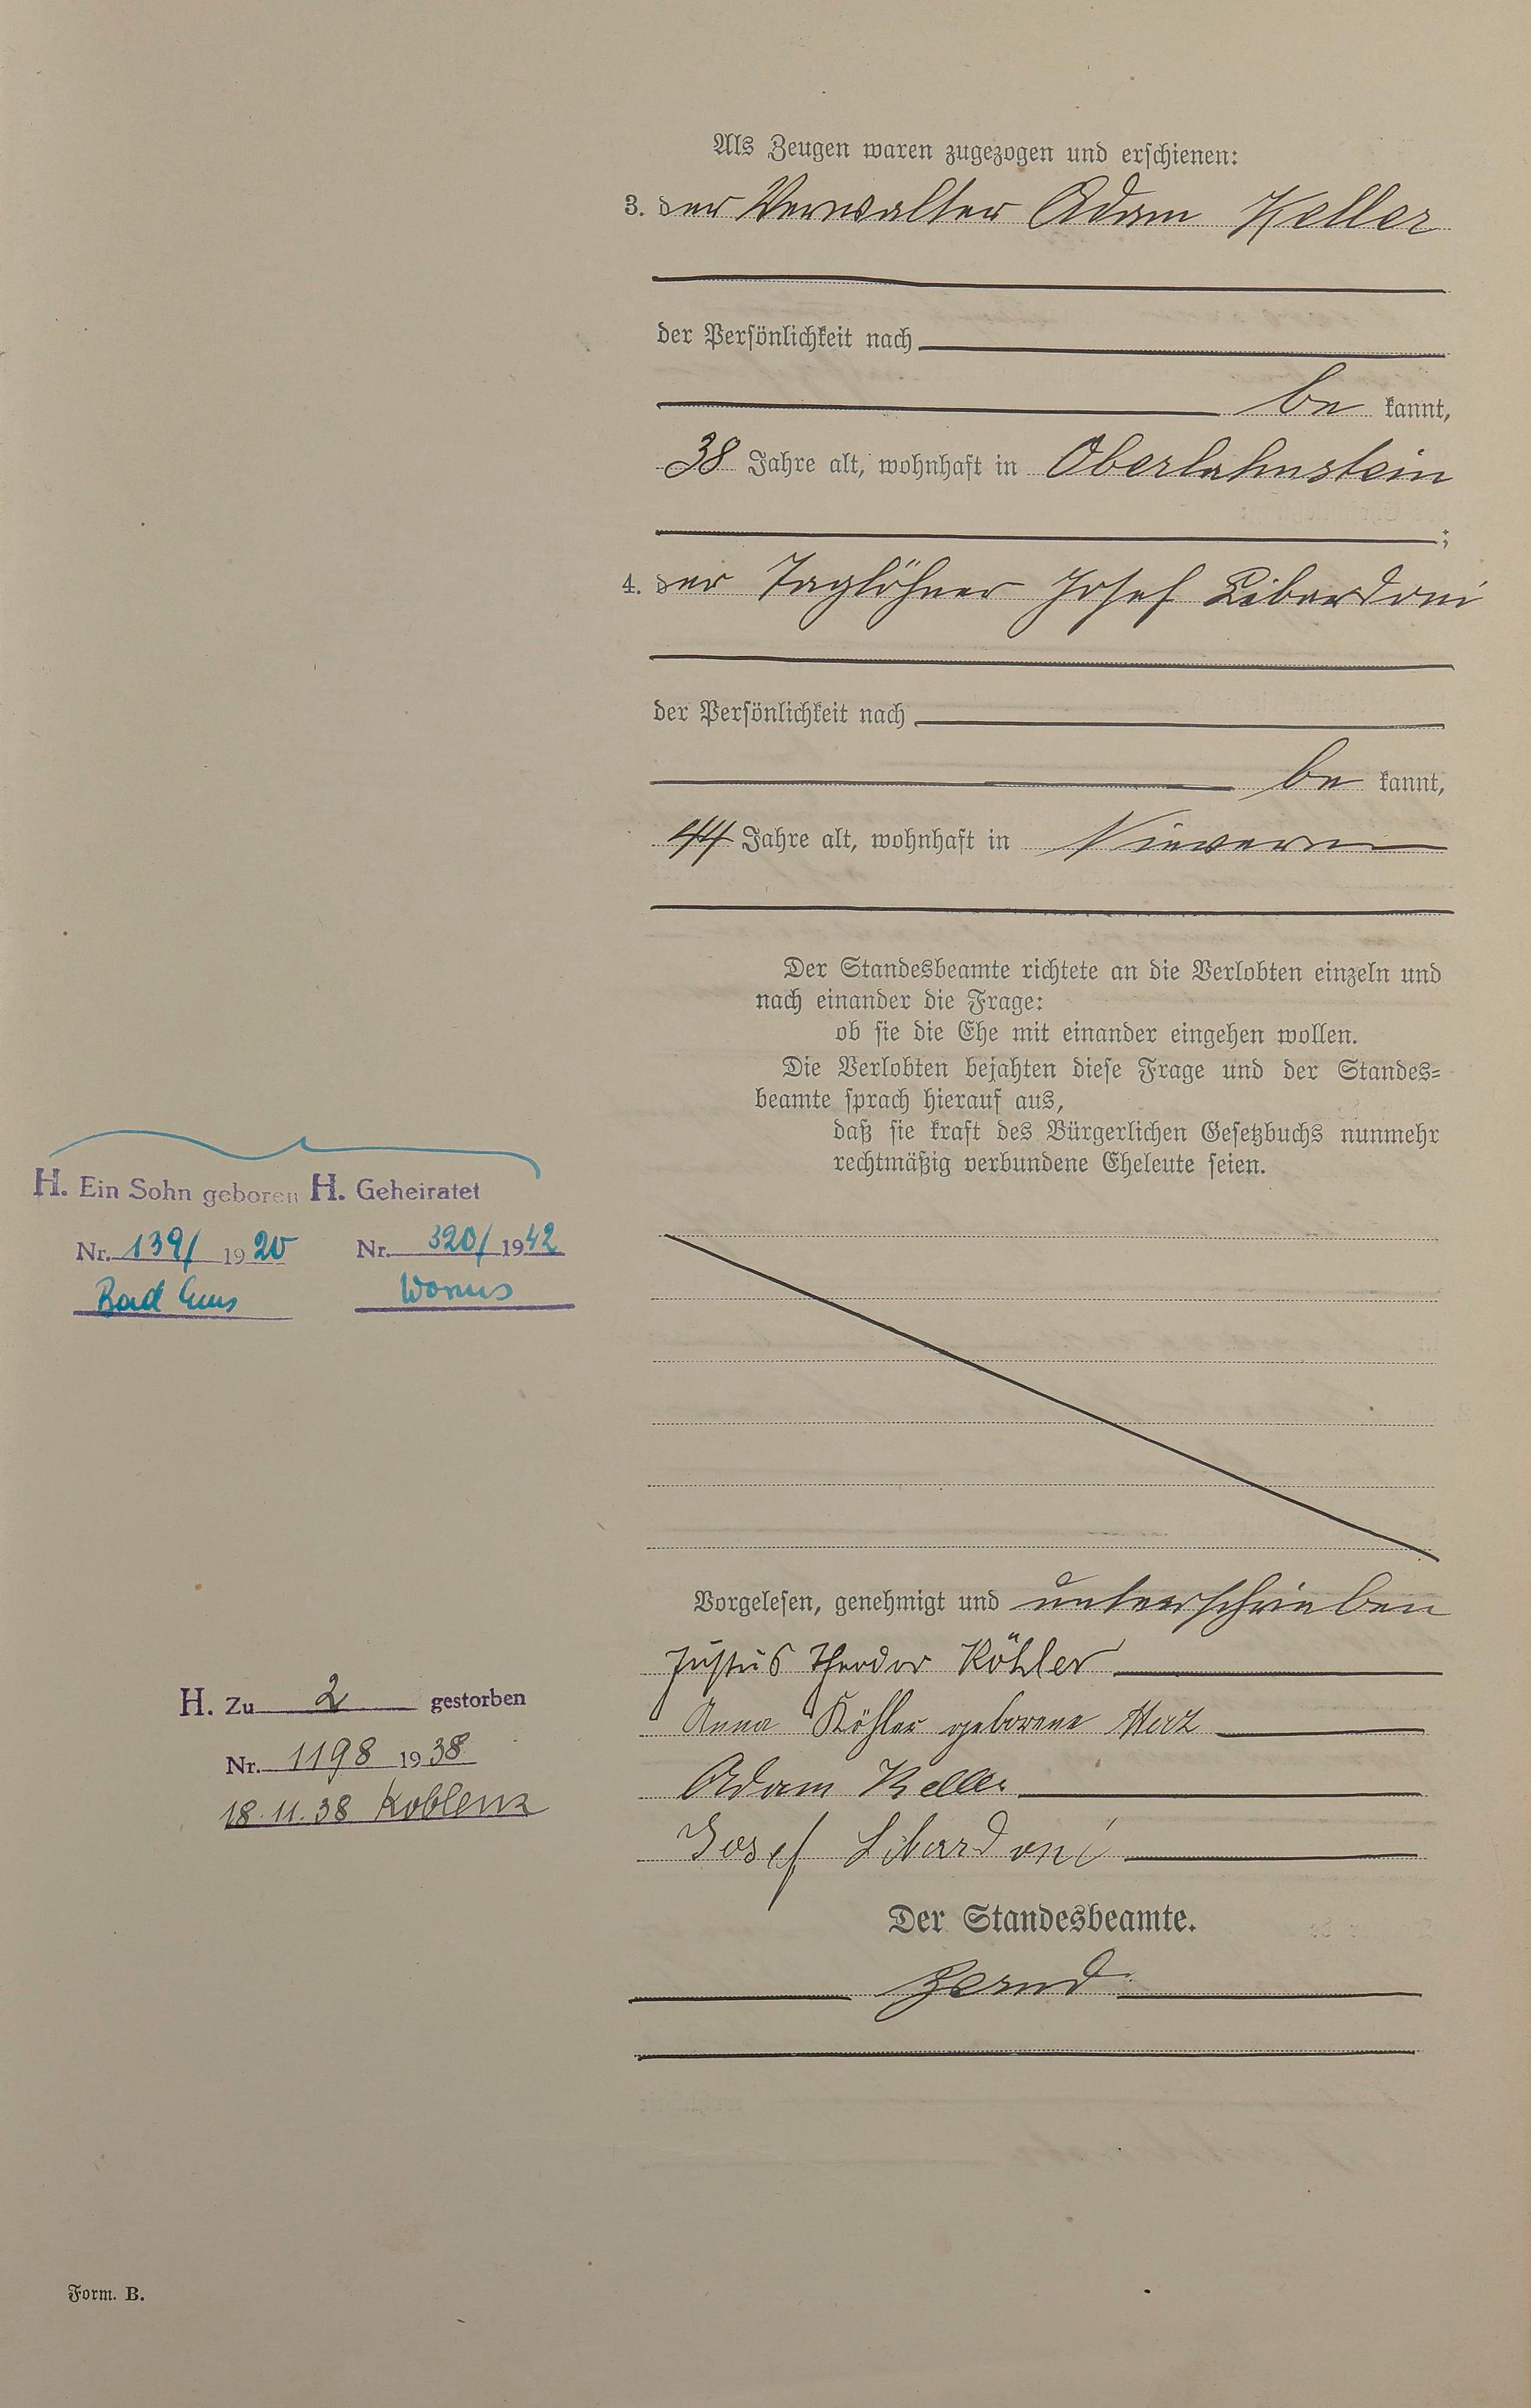 Als Zeugen waren zugezogen und erschienen:
3. der Verwalter Adam Keller
der Persönlichkeit nach
be kannt,
38 Jahre alt, wohnhaft in Oberlahnstein
;
4. der Taglöhner Josef Libardoni
der Persönlichkeit nach
be kannt,
44 Jahre alt, wohnhaft in Nievern
Der Standesbeamte richtete an die Verlobten einzeln und
nach einander die Frage:
ob sie die Ehe mit einander eingehen wollen.
Die Verlobten bejahten diese Frage und der Standes=
beamte sprach hierauf aus,
daß sie kraft des Bürgerlichen Gesetzbuchs nunmehr
rechtmäßig verbundene Eheleute seien.
H. Ein Sohn geboren
Nr. 139/ 1920
Bad Ems
H. Geheiratet
Nr. 320/ 1942
Worms
Vorgelesen, genehmigt und unterschrieben
Justus Theodor Köhler
Anna Köhler geborene Herz
Adam Keller
Josef Libardoni
H. Zu 2 gestorben
Nr. 1198 1938
18.11.38 Koblenz
Der Standesbeamte.
Form. B.